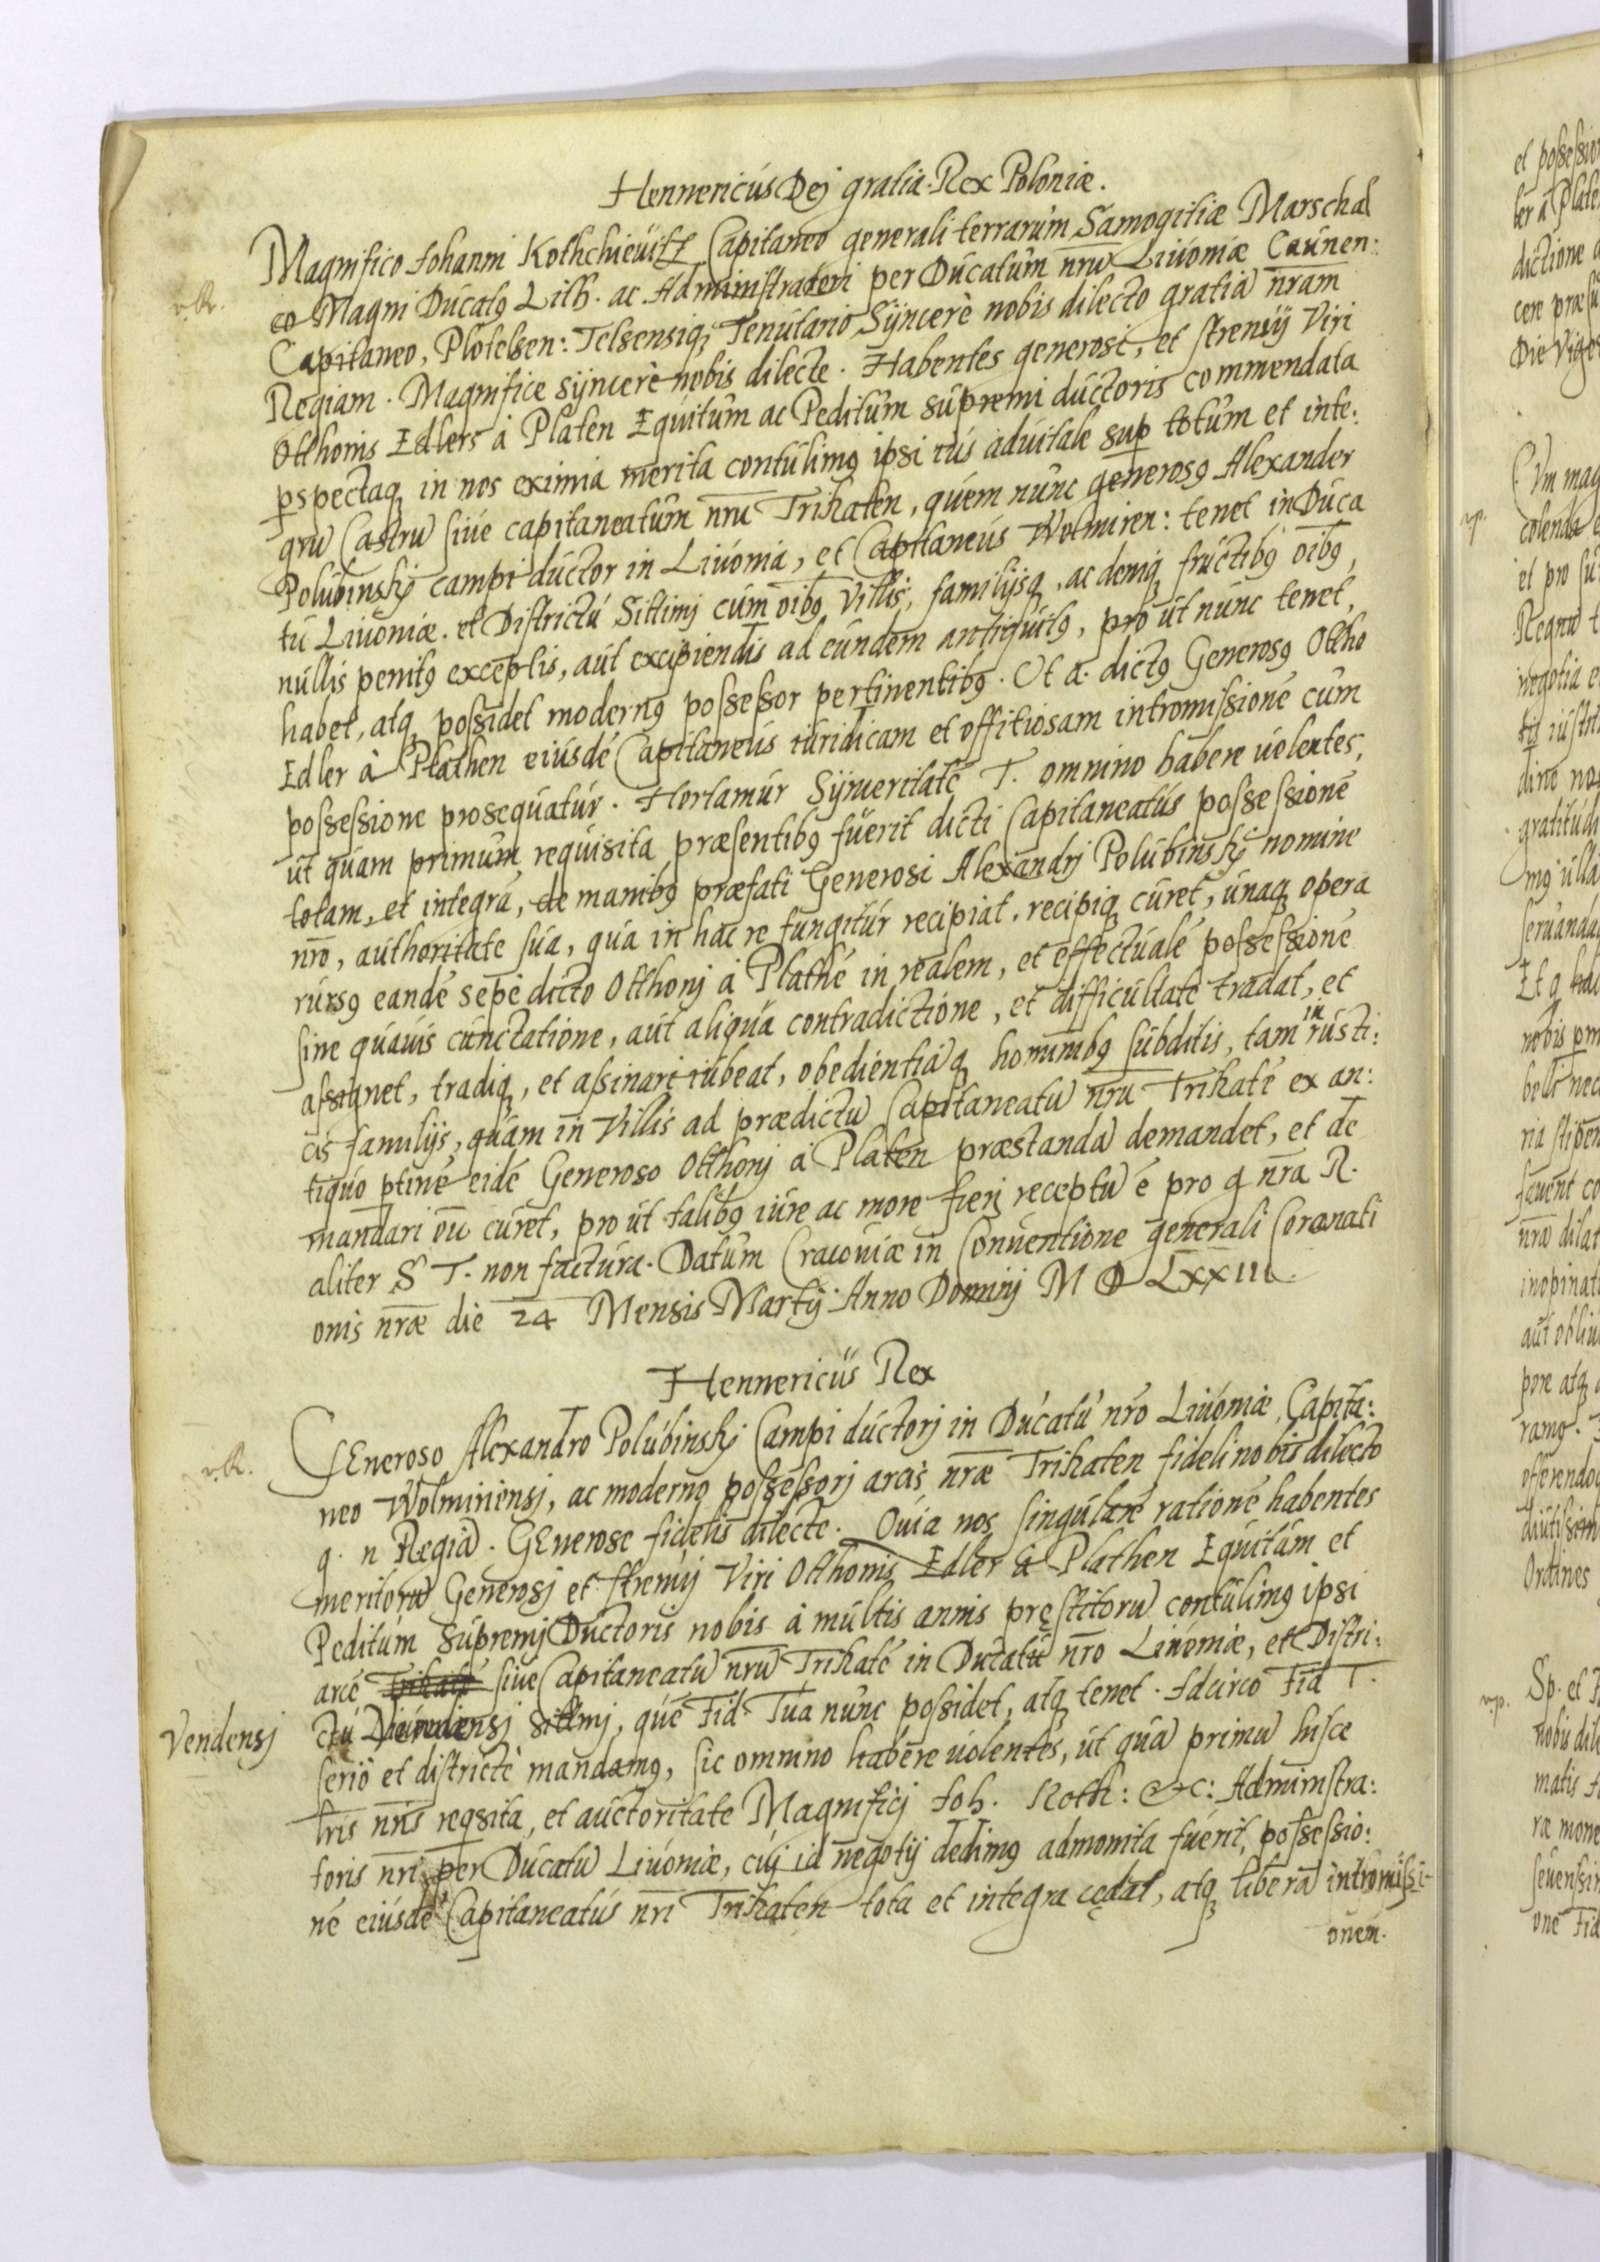 Hennericús Dej gratia Rex Poloniæ.
Magnifico Iohanni Kothchieuitz Capitaneo generali terrarúm Samogitiæ Marschal
co Magni Dúcatꝰ Lith. ac Administratori per Dúcatúm nr̄ū Liuoniæ Caúnen:
Capitaneo, Plotelsen: Telsensiqꝫ Tenútario Sÿncerè nobis dilecto gratiā nr̄am
Regiam. Magnifice sÿncerè nobis dilecte. Habentes generosi, et strenúÿ Viri
Otthonis Edlers à Platen Equitúm ac Peditúm súpremi dúctoris commendata
ꝑspectaqꝫ in nos eximia merita contúlimꝰ ipsi iús aduitale suꝑ totúm et inte:
grū Castrū siue capitaneatúm nr̄ū Trikaten, qúem núnc generosꝰ Alexander
Polúbinskÿ campi dúctor in Liuonia, et Capitaneús Wolmiren: tenet in Dúca
tú Liuoniæ. et Districtú Sittimj cúm oībꝰ Villis, familÿsqꝫ, ac deniqꝫ frúctibꝰ oībꝰ,
núllis penitꝰ exceptis, aút excipiendis ad eúndem antiqúitꝰ, pro út núnc tenet,
habet, atqꝫ possidet modernꝰ possessor pertinentibꝰ. Ut a. dictꝰ Generosꝰ Ottho
Edler à Plathen eiúsdē Capitaneús iúridicam et offitiosam intromissionē cúm
possessione proseqúatúr. Hortamúr Sÿnceritatē T. omnino habere uolentes,
út qúam primúm reqúisita præsentibꝰ fúerit dicti Capitaneatús possessionē
totam, et integrā, de manibꝰ præfati Generosi Alexandrj Polúbinskÿ nomine
nr̄o, authoritate súa, qúa in hac re fúngitúr recipiat, recipiqꝫ cúret, únaqꝫ opera
rúrsꝰ eandē sepē dicto Otthonj à Plathē in realem, et effectúalē possessionē
sine qúauis cúnctatione, aút aliqúa contradictione, et difficúltate tradat, et
assignet, tradiqꝫ, et assinari iúbeat, obedientiāqꝫ hominibꝰ súbditis, tam in rústi:
cis familÿs, qúam in Villis ad prædictū Capitaneatū nr̄ū Trikatē ex an:
tiqúo ꝑtinē eidē Generoso Otthonj à Platen præstandā demandet, et de
mandari oīū cúret, pro út talibꝰ iúre ac more fierj receptū ē pro q nr̄a R.
aliter S T. non factúra. Datúm Cracouiæ in Conúentione generali Coronati
onis nr̄æ die 24 Mensis Martÿ Anno Dominj M D LXXIIII.
Hennericús Rex
GEneroso Alexandro Polúbinskj Campi dúctorj in Dúcatú nr̄o Liuoniæ, Capita:
neo Wolmiriensj, ac modernꝰ possessorj arcis nr̄æ Trikaten fideli nobis dilecto
g. n Regiā. GEnerose fidelis dilecte. Quia nos singúlarē rationē habentes
meritorū Generosj et strenúj Viri Otthonis Edler à Plathen Eqúitúm et
Peditúm Súpremj Dúctoris nobis à múltis annis pręstitorū contúlimꝰ ipsi
arcē Trikatē siue Capitaneatū nr̄ū Trikatē in Dúcatú nr̄o Liuoniæ, et Distri:
ctú Vendensj sittimj, qúē Fid Túa núnc possidet, atqꝫ tenet. Idcirco Fid T.
Vendensj
serio et districtè mandamꝰ, sic omnino habere uolentes, út qúā primū hisce
lr̄is nr̄is reqsita, et aúctoritate Magnificj Ioh. Koth: &c: Administra:
toris nr̄i per Dúcatū Liuoniæ, cúj id negotÿ dedimꝰ admonita fúerit, possessio:
nē eiúsdē Capitaneatús nr̄i Trikaten tota et integra cędat, atqꝫ liberā intromissi-
onem.